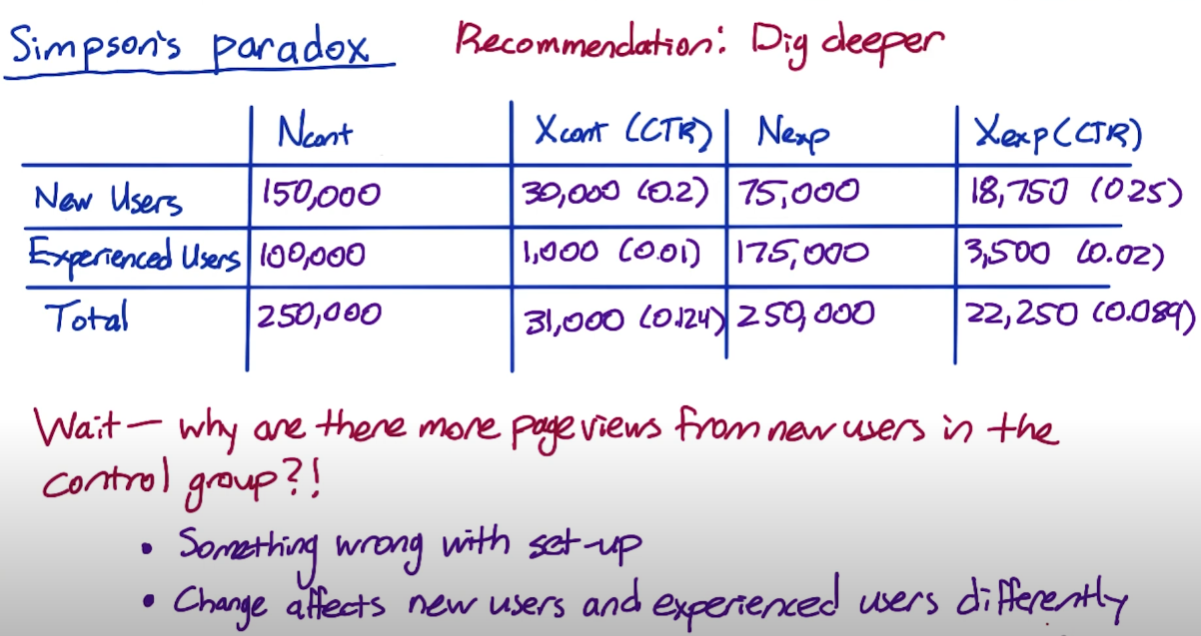 Simpson's paradox Recommendation: Dig deeper
Ncont Xcont (CTR) Nexp Xexp (CTR)
New Users 150,000 30,000 (0.2) 75,000 18,750 (025)
Experienced Users 100,000 1,000 (0.01) 175,000 3,500 (0.02)
Total 250,000 31,000 (0.124) 250,000 22,250 (0.089)
Wait — why are there more pageviews from new users in the
control group?!
• Something wrong with set-up
• Change affects new users and experienced users differently